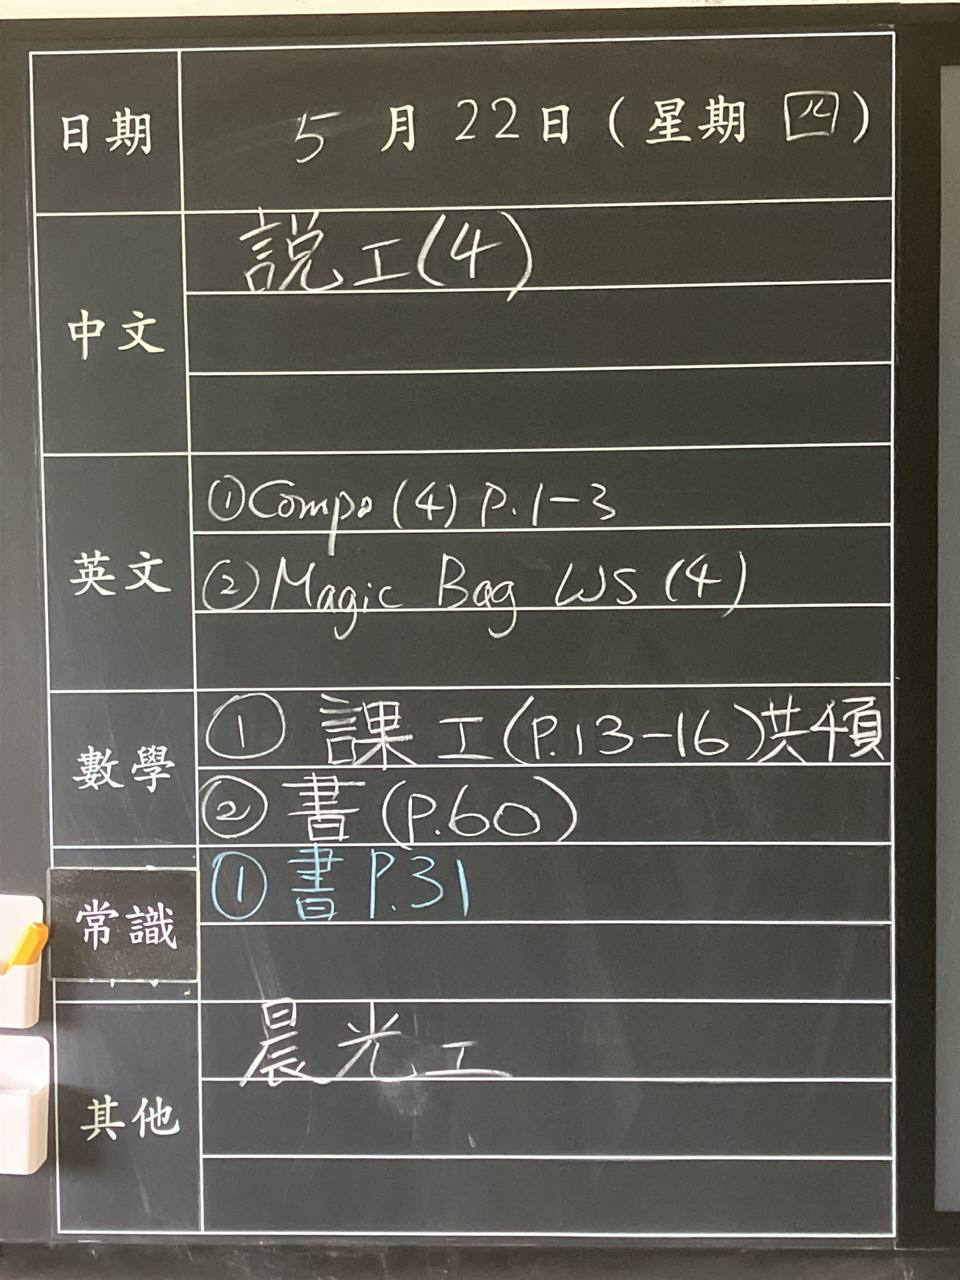 日期 5月22日(星期四)
中文 説工(4)
英文 ①Compo (4) P.1-3
②Magic Bag WS (4)
數學 ① 課工(P.13-16)共4頁
② 書(P.60)
常識 ① 書 P.31
其他 晨光工